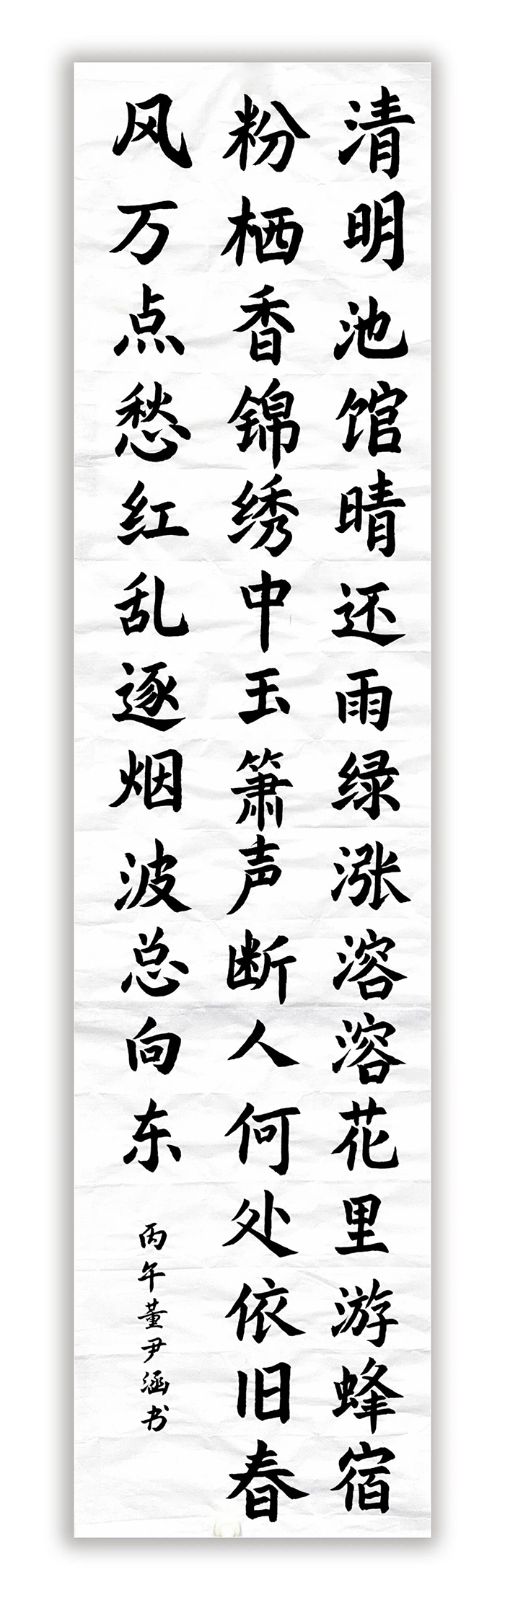 清明池馆晴还雨绿涨溶溶花里游蜂宿
粉栖香锦绣中玉箫声断人何处依旧春
风万点愁红乱逐烟波总向东
丙午董尹涵书